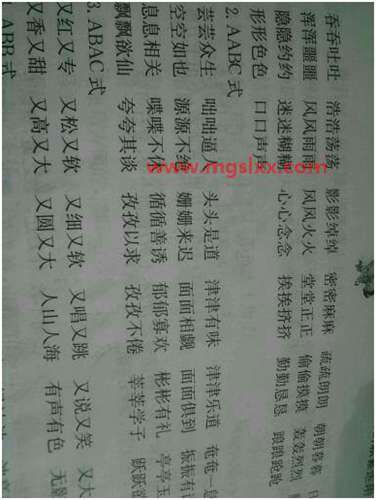 吞吞吐吐 浩浩荡荡 影影绰绰 密密麻麻 疏疏朗朗 朝朝暮暮
浑浑噩噩 风风雨雨 风风火火 堂堂正正 偷偷摸摸 轰轰烈烈
隐隐约约 迷迷糊糊 心心念念 挨挨挤挤 勤勤恳恳 踉踉跄跄
形形色色 口口声声
2. AABC 式
芸芸众生 咄咄逼 头头是道 津津有味 津津乐道 奄奄一
空空如也 源源不绝 姗姗来迟 面面相觑 面面俱到 振振有
息息相关 喋喋不 循循善诱 郁郁寡欢 彬彬有礼 亭亭玉
飘飘欲仙 夸夸其谈 孜孜以求 孜孜不倦 莘莘学子 跃跃
3. ABAC 式
又红又专 又松又软 又细又软 又唱又跳 又说又笑 又大
又香又甜 又高又大 又圆又大 人山人海 有声有色 无
ABB 式
www.mgslxx.com